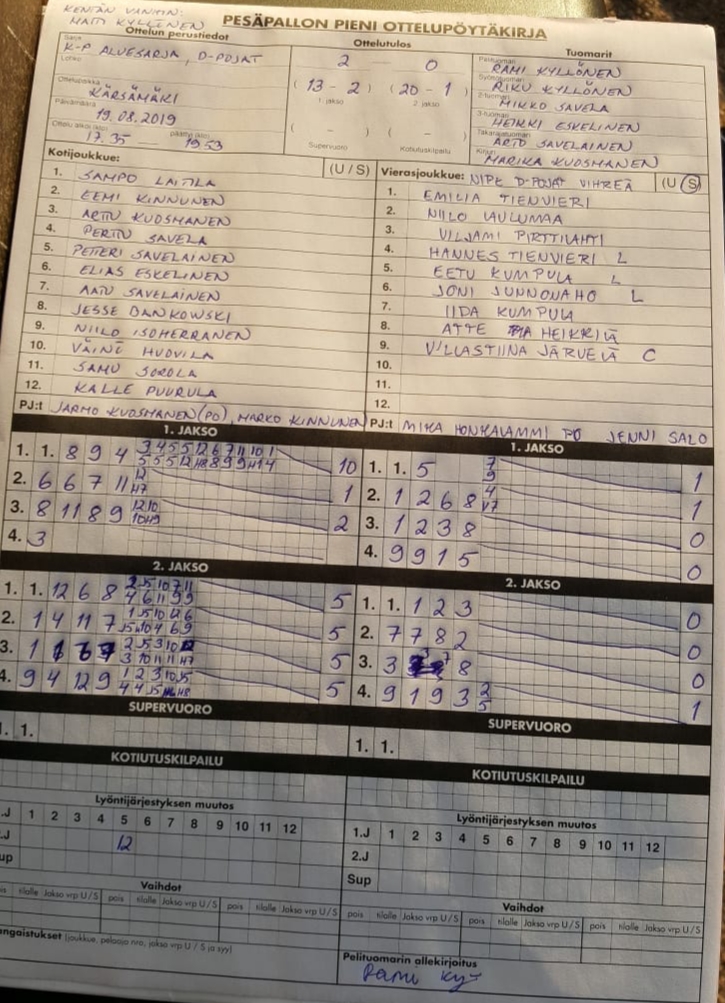 KENTÄN VANHIN:
MATTI KYLLÖNEN
PESÄPALLON PIENI OTTELUPÖYTÄKIRJA
Ottelun perustiedot
Sarja
K-P ALUESARJA, D-POJAT
Lohko
Ottelupaikka
KÄRSÄMÄKI
Päivämäärä
19.08.2019
Ottelu alkoi (klo) päättyi (klo)
17.35 19.53
Ottelutulos
2 0
(13 - 2) (20 - 1)
1. jakso 2. jakso
( - ) ( - )
Supervuoro Kotiutuskilpailu
Tuomarit
Pelituomari
RAMI KYLLÖNEN
Syöttötuomari
RIKU KYLLÖNEN
2-tuomari
MIKKO SAVELA
3-tuomari
HEIKKI ESKELINEN
Takarajatuomari
ARTO SAVELAINEN
Kirjuri
MARIKA KUOSMANEN
Kotijoukkue: (U / S)
1. SAMPO LAITILA
2. EEMI KINNUNEN
3. ARTTU KUOSMANEN
4. PERTTU SAVELA
5. PETTERI SAVELAINEN
6. ELIAS ESKELINEN
7. AATU SAVELAINEN
8. JESSE DANKOWSKI
9. NIILO ISOHERRANEN
10. VÄINÖ HUOVILA
11. SAMU
12. KALLE PUURULA
PJ:t JARMO KUOSMANEN (PO), MARKO KINNUNEN
Vierasjoukkue: NIPE D-POJAT VIHREÄ (U / S)
1. EMILIA TIENVIERI
2. NIILO LAULUMAA
3. VILJAMI PIRTTILAHTI
4. HANNES TIENVIERI L
5. EETU KUMPULA L
6. JONI JUNNONAHO L
7. IIDA KUMPULA
8. ATTE HEIKKILÄ
9. VILLASTIINA JÄRVELÄ C
10.
11.
12.
PJ:t MIKA HONKALAMMI PO JENNI SALO
1. JAKSO
1. 1. 8 9 4 10
2. 6 6 7 11 1
3. 8 11 8 9 2
4. 3
2. JAKSO
1. 1. 12 6 8 5
2. 1 4 11 7 5
3. 1 5
4. 9 4 12 9 5
SUPERVUORO
1. 1.
KOTIUTUSKILPAILU
1. JAKSO
1. 1. 5 7 9 1
2. 1 2 6 8 4 1
3. 1 2 3 8 0
4. 9 9 1 5 0
2. JAKSO
1. 1. 1 2 3 0
2. 7 7 8 2 0
3. 3 8 0
4. 9 1 9 3 2 5 1
SUPERVUORO
1. 1.
KOTIUTUSKILPAILU
Lyöntijärjestyksen muutos
.J 1 2 3 4 5 6 7 8 9 10 11 12
.J 12
up
Vaihdot
is tilalle Jakso vrp U / S pois tilalle Jakso vrp U / S pois tilalle Jakso vrp U / S
angaistukset (joukkue, pelaaja nro, jakso vrp U / S ja syy)
Lyöntijärjestyksen muutos
1.J 1 2 3 4 5 6 7 8 9 10 11 12
2.J
Sup
Vaihdot
pois tilalle Jakso vrp U / S pois tilalle Jakso vrp U / S pois tilalle Jakso vrp U / S
Pelituomarin allekirjoitus
Rami